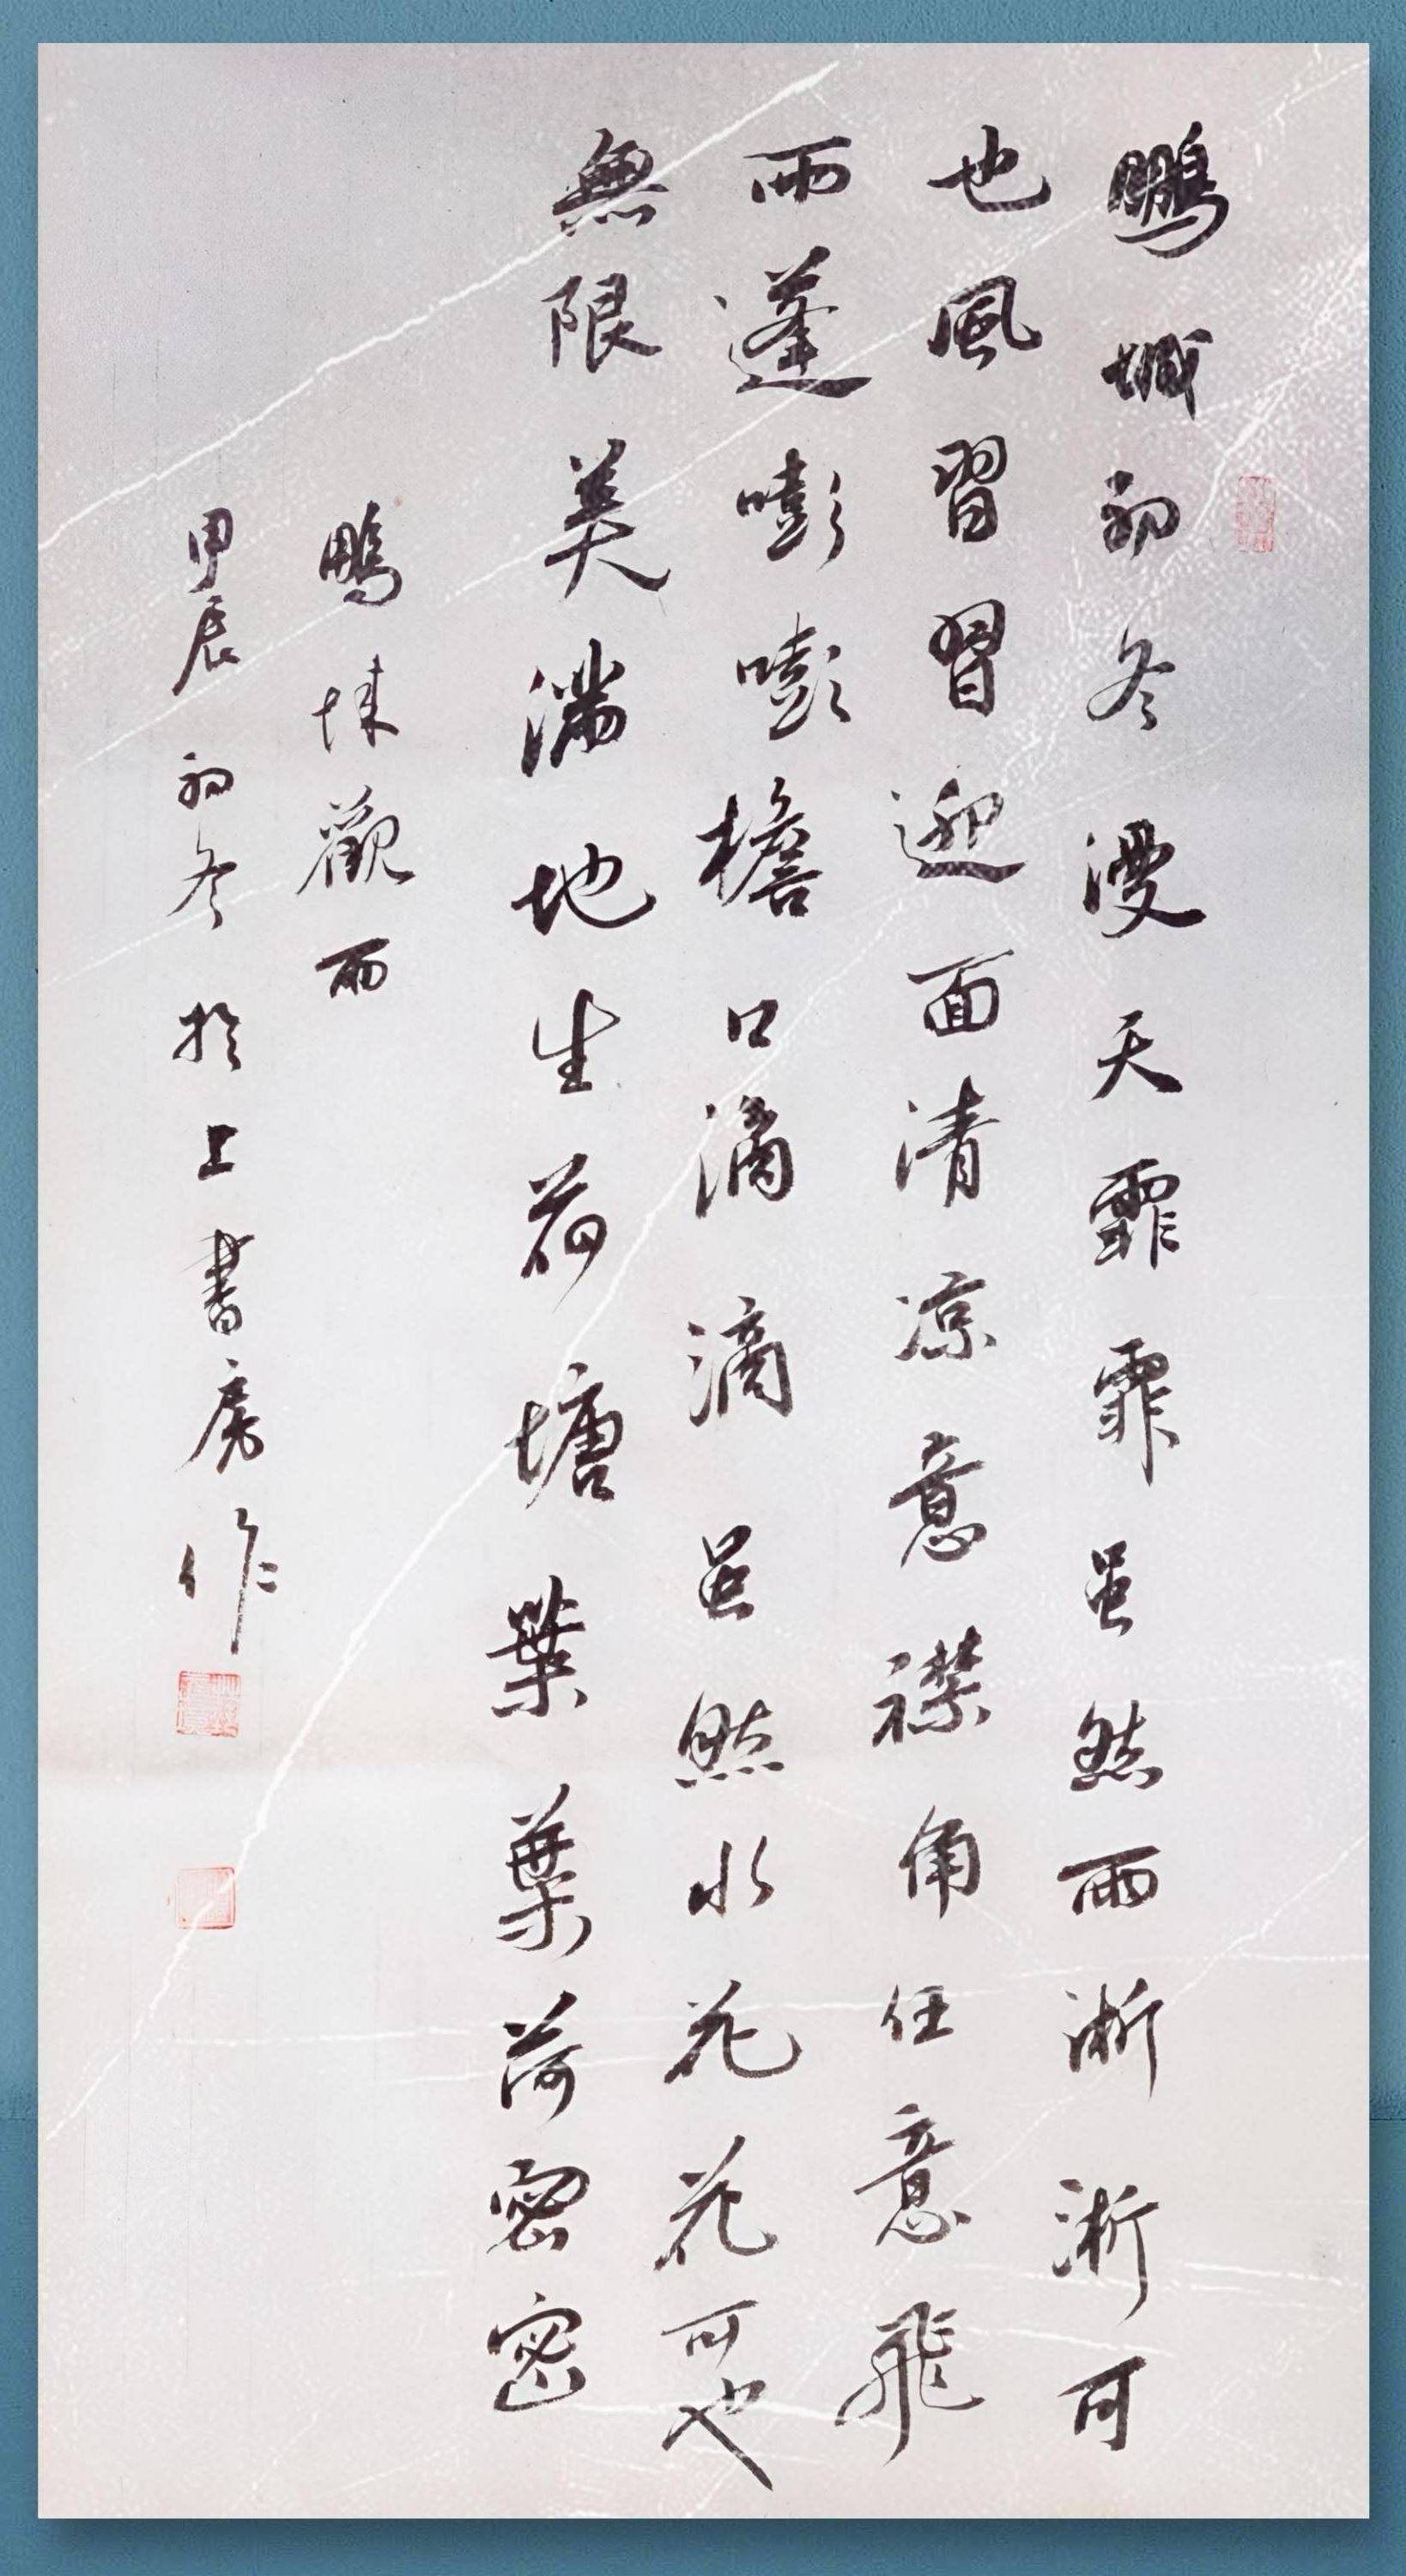 鵬城初冬漫天霏霏虽然雨淅淅可
也風習習迎面清凉意襟角任意飛
雨蓬嘭嘭檐口滴滴虽然水花花可也
無限美滿地生荷塘葉葉荷密密
鵬城觀雨
甲辰初冬於上書房作